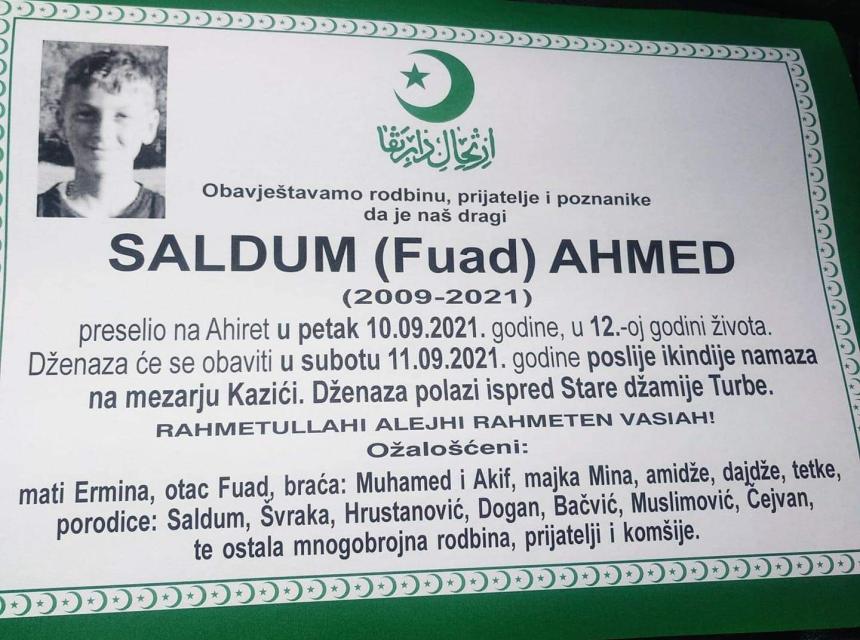 ارتحال دار بقا
Obavještavamo rodbinu, prijatelje i poznanike
da je naš dragi
SALDUM (Fuad) AHMED
(2009-2021)
preselio na Ahiret u petak 10.09.2021. godine, u 12.-oj godini života.
Dženaza će se obaviti u subotu 11.09.2021. godine poslije ikindije namaza
na mezarju Kazići. Dženaza polazi ispred Stare džamije Turbe.
RAHMETULLAHI ALEJHI RAHMETEN VASIAH!
Ožalošćeni:
mati Ermina, otac Fuad, braća: Muhamed i Akif, majka Mina, amidže, dajdže, tetke,
porodice: Saldum, Švraka, Hrustanović, Dogan, Bačvić, Muslimović, Čejvan,
te ostala mnogobrojna rodbina, prijatelji i komšije.